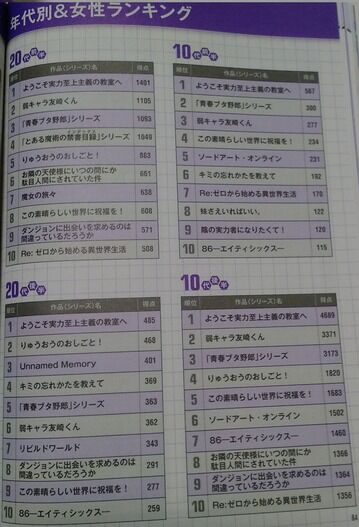 年代別&女性ランキング
20代前半
順位 作品(シリーズ)名 得点
1 ようこそ実力至上主義の教室へ 1401
2 弱キャラ友崎くん 1105
3 「青春ブタ野郎」シリーズ 1093
4 「とある魔術の禁書目録」シリーズ 1049
5 りゅうおうのおしごと! 883
6 お隣の天使様にいつの間にか
駄目人間にされていた件 661
7 魔女の旅々 638
8 この素晴らしい世界に祝福を! 608
9 ダンジョンに出会いを求めるのは
間違っているだろうか 571
10 Re:ゼロから始める異世界生活 508
10代前半
順位 作品(シリーズ)名 得点
1 ようこそ実力至上主義の教室へ 567
2 「青春ブタ野郎」シリーズ 380
3 弱キャラ友崎くん 277
4 この素晴らしい世界に祝福を! 234
5 ソードアート・オンライン 231
6 キミの忘れかたを教えて 192
7 Re:ゼロから始める異世界生活 170
8 妹さえいればいい。 122
9 陰の実力者になりたくて! 120
10 86―エイティシックス― 115
20代後半
順位 作品(シリーズ)名 得点
1 ようこそ実力至上主義の教室へ 485
2 りゅうおうのおしごと! 468
3 Unnamed Memory 401
4 キミの忘れかたを教えて 369
5 「青春ブタ野郎」シリーズ 363
6 弱キャラ友崎くん 362
7 リビルドワールド 343
8 ダンジョンに出会いを求めるのは
間違っているだろうか 291
9 この素晴らしい世界に祝福を! 277
10 86―エイティシックス― 259
10代後半
順位 作品(シリーズ)名 得点
1 ようこそ実力至上主義の教室へ 4689
2 弱キャラ友崎くん 3371
3 「青春ブタ野郎」シリーズ 3173
4 りゅうおうのおしごと! 1820
5 この素晴らしい世界に祝福を! 1683
6 ソードアート・オンライン 1502
7 86―エイティシックス― 1460
8 お隣の天使様にいつの間にか
駄目人間にされていた件 1366
9 ダンジョンに出会いを求めるのは
間違っているだろうか 1364
10 Re:ゼロから始める異世界生活 1356
84